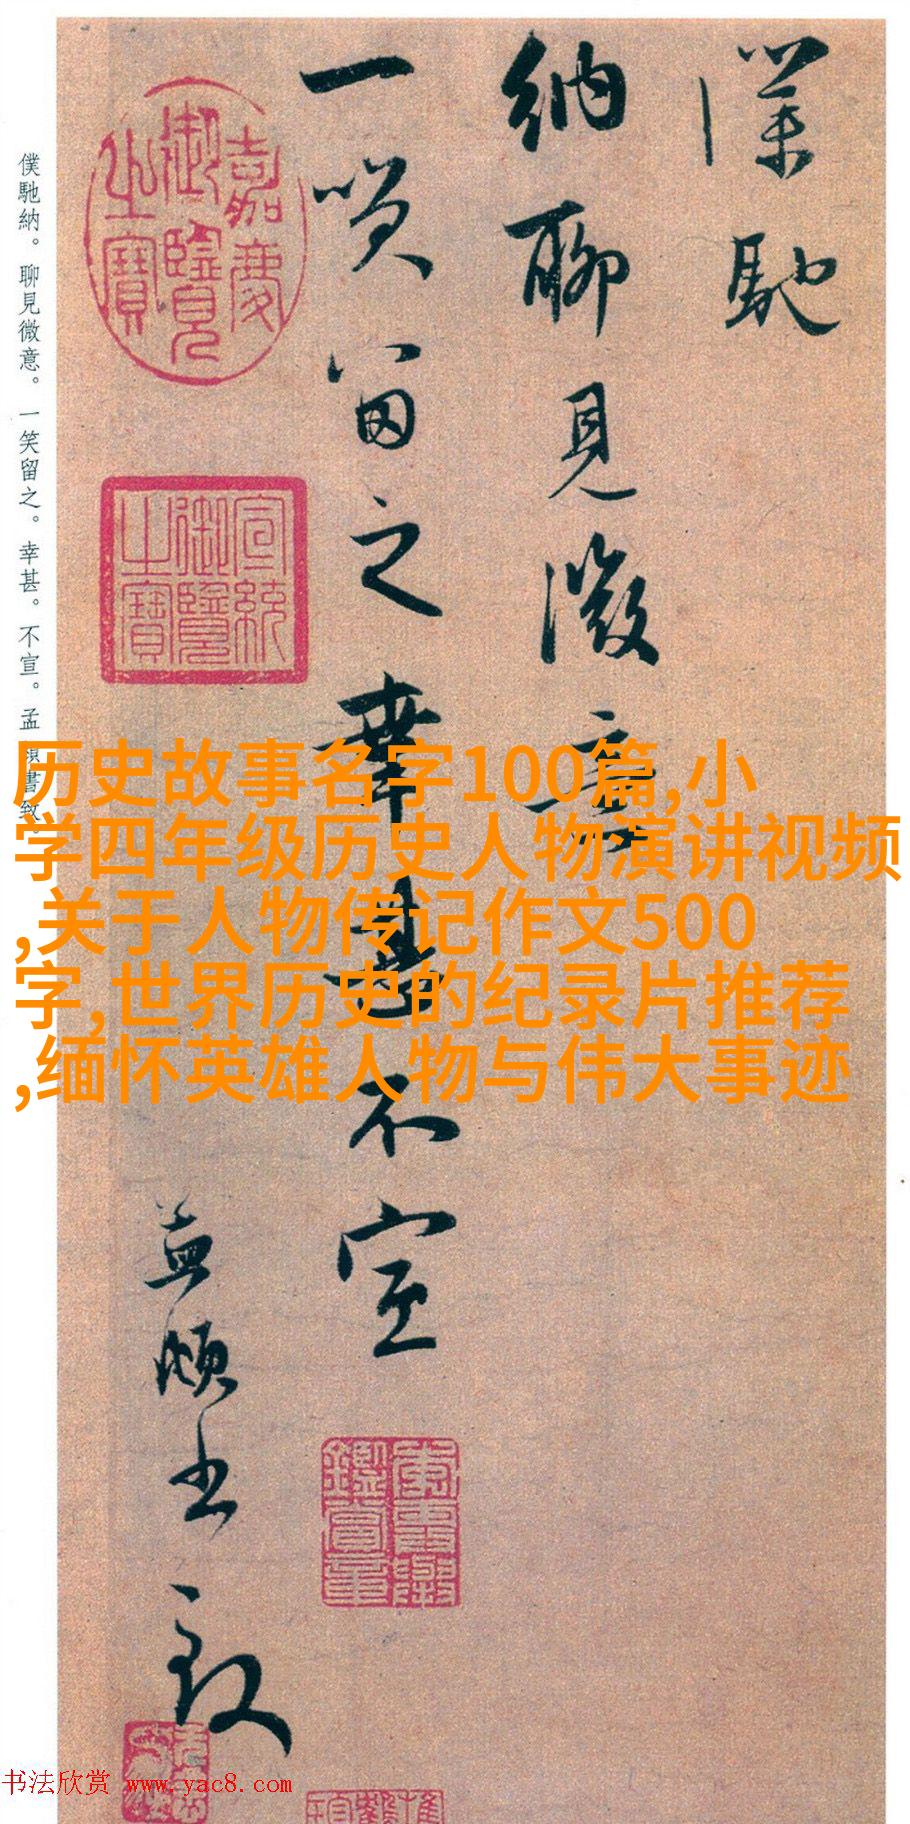 僕馳
納聊見微意
一笑留之幸甚不宣
孟頫書致
嘉慶
御覽
之寶
宣統
御覽
之寶
僕馳納。聊見微意。一笑留之。幸甚。不宣。孟頫書致。
历史故事名字100篇,小
学四年级历史人物演讲视频
,关于人物传记作文500
字,世界历史的纪录片推荐
,缅怀英雄人物与伟大事迹
书法欣赏 www.yac8.com